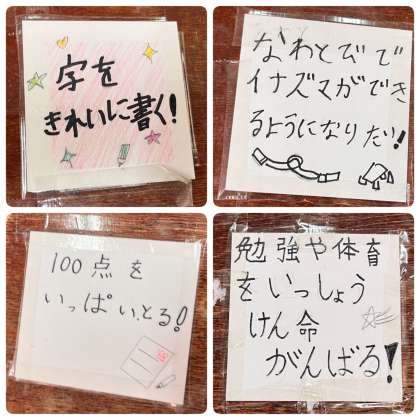 字を
きれいに書く!
なわとびで
イナズマができ
るようになりたい!
100点を
いっぱいとる!
勉強や体育
をいっしょう
けん命
がんばる!